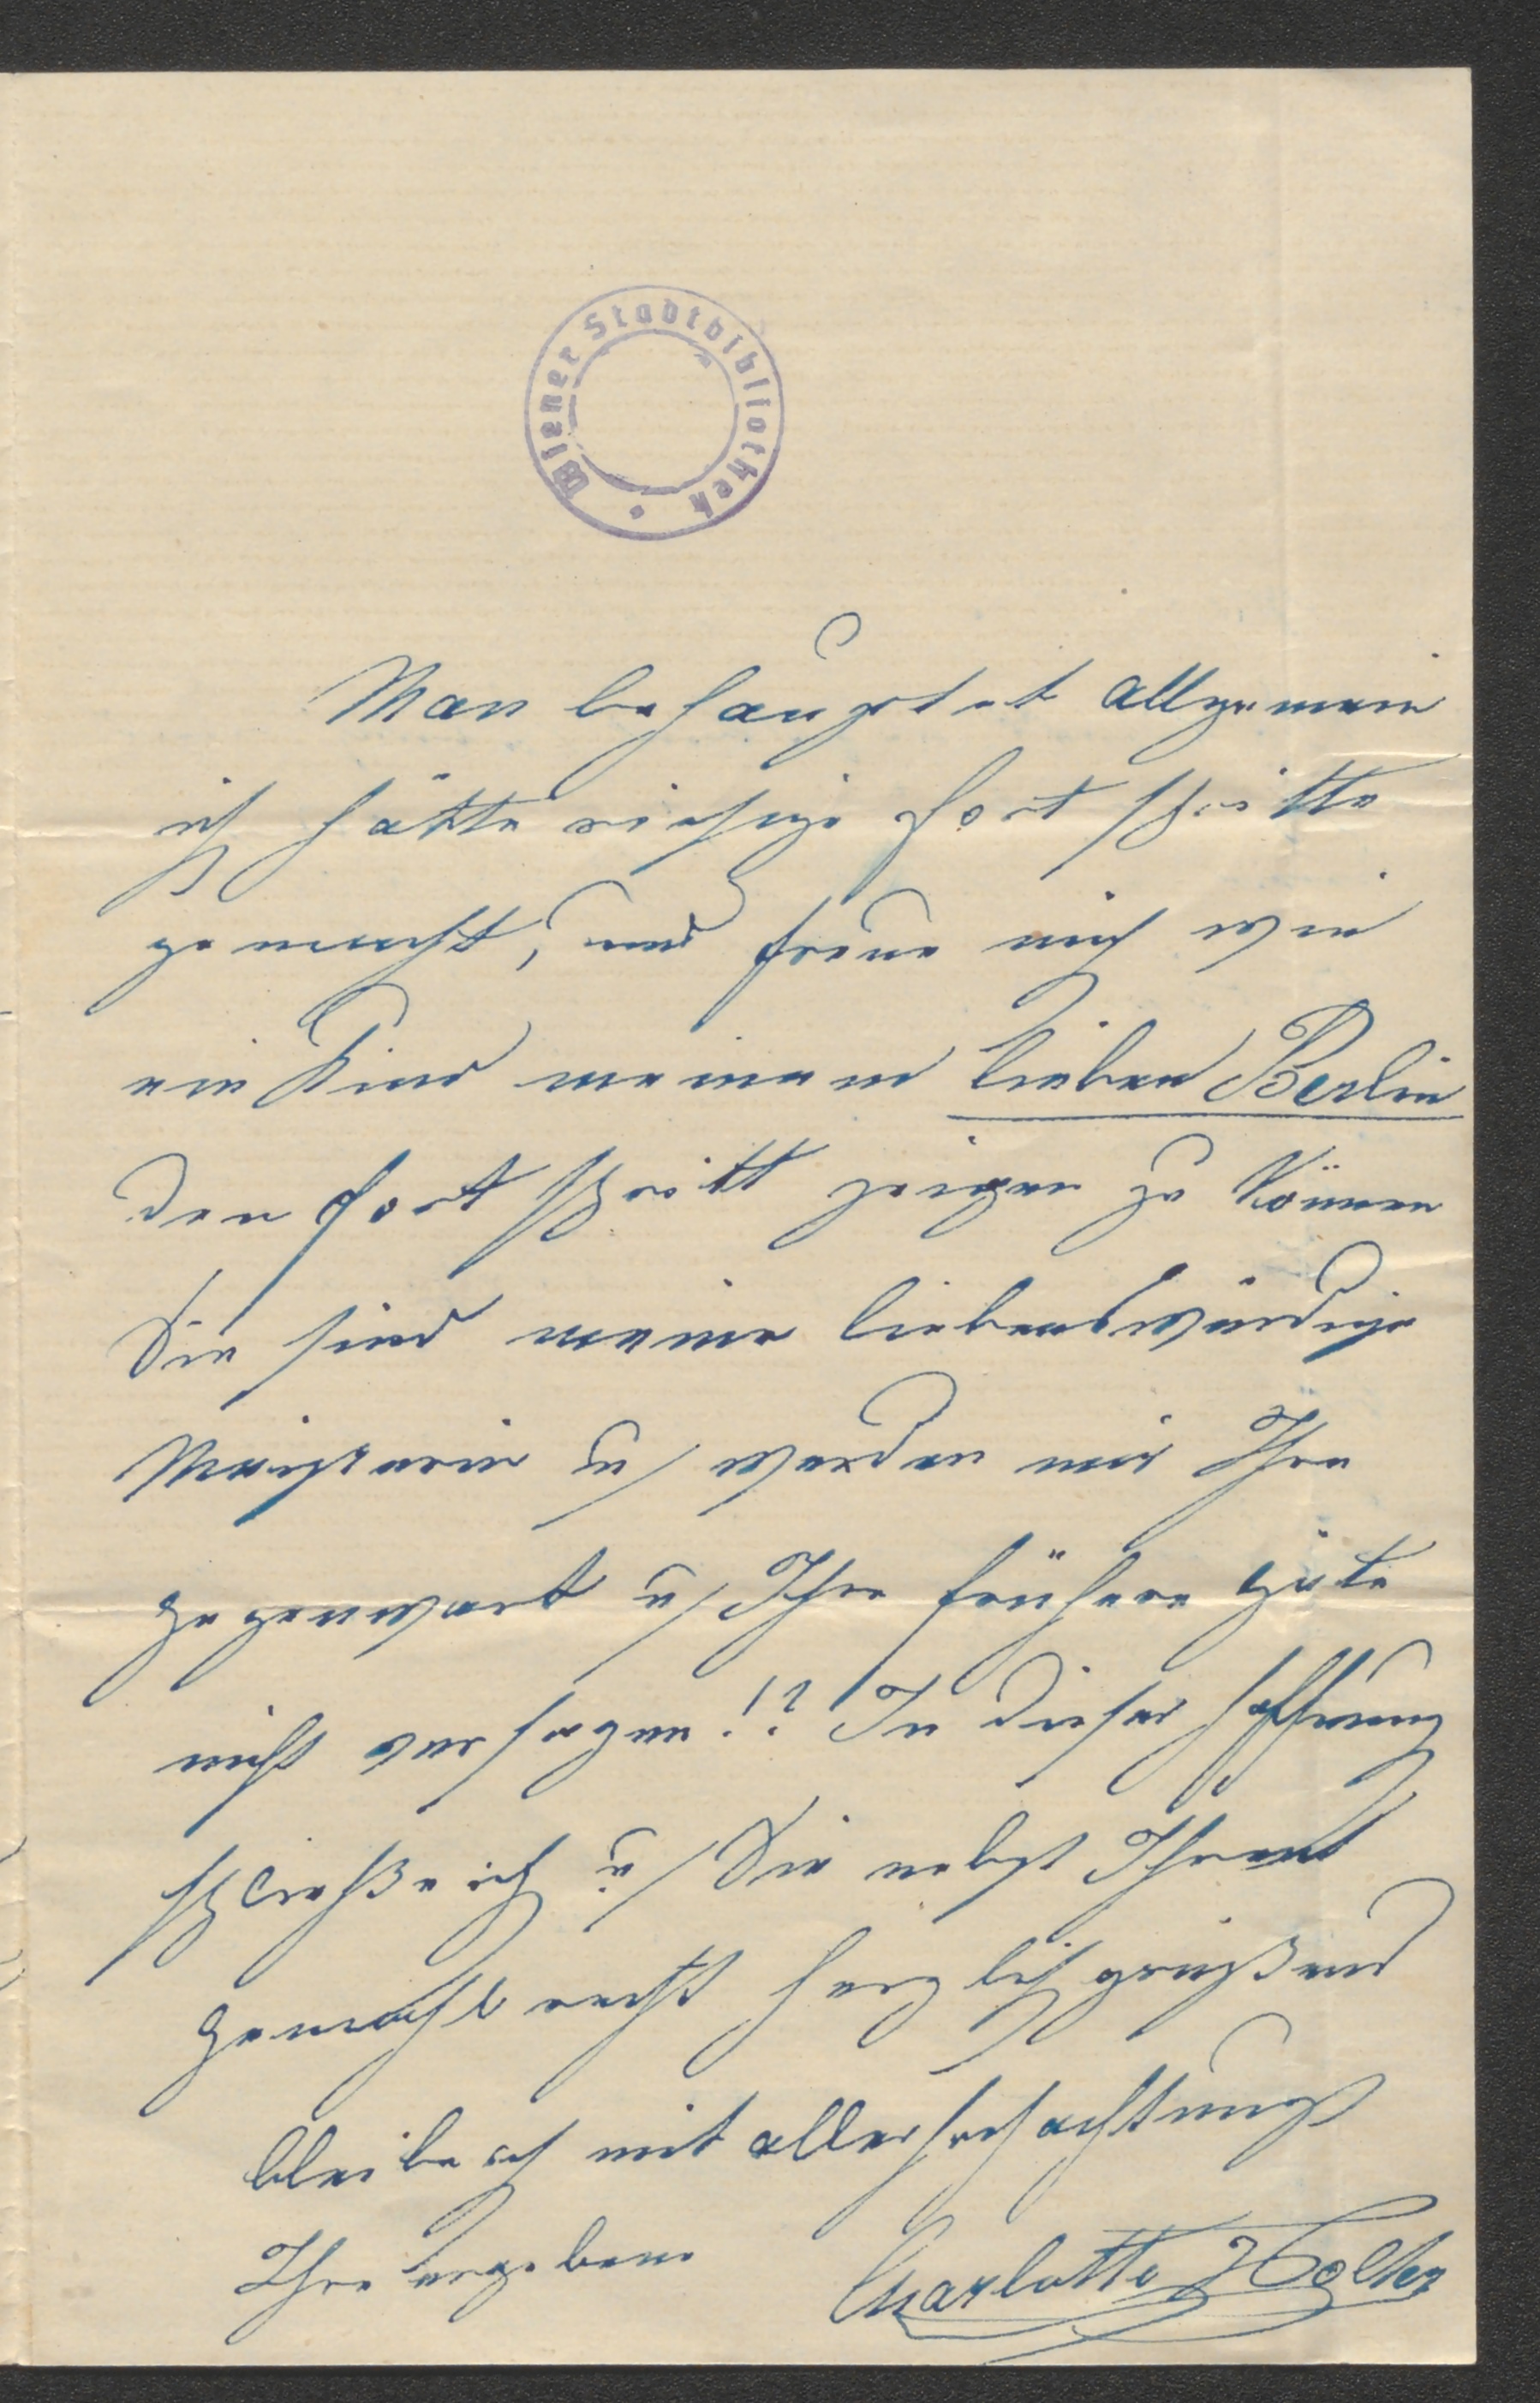 Wiener Stadtbibliothek
Man behauptet allgemein
ich hätte riesige Fortschritte
gemacht, und freue mich wie
ein Kind meinem lieben Berlin
den Fortschritt zeigen zu können
Sie sind meine liebenswürdige
u/ werden mir Ihre
Gegenwart u/ Ihre frühere Güte
nicht versagen!? In dieser Hoffnung
schließe ich u/ Sie nebst Ihrem
Gemahl recht herzlich grüßend
bleibe ich mit aller Hochachtung
Ihre ergebene Charlotte Wolter